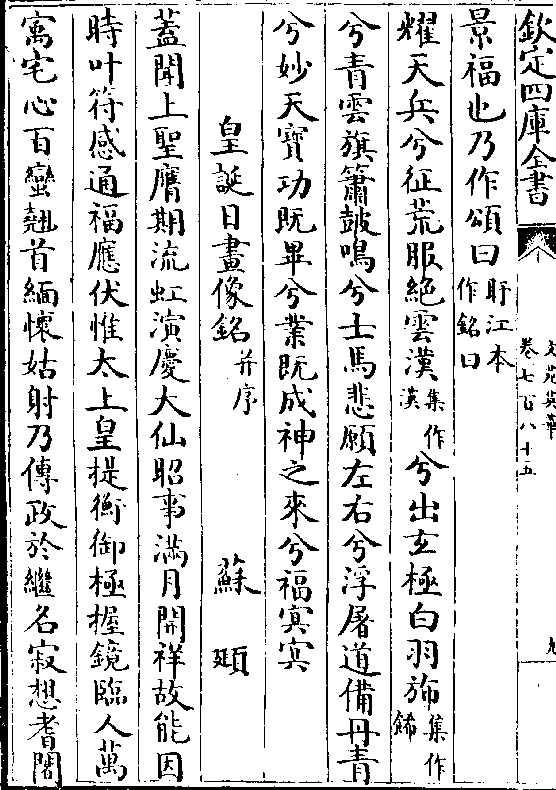 欽定四庫全書
文苑英華
卷七百八十五
九
景福也乃作頌曰盱江本作銘曰
耀天兵兮征荒服絶雲漠集作漢兮出玄極白羽斾集作鏑
兮青雲旗簫鼓鳴兮士馬悲願左右兮浮屠道備丹青
兮妙天寳功既畢兮業既成神之來兮福冥冥
皇誕日畫像銘并序　蘇頲
蓋聞上聖膺期流虹演慶大仙昭事滿月開祥故能因
時叶符感通福應伏惟太上皇提衡御極握鏡臨人萬
寓宅心百蠻翹首緬懷姑射乃傳政於繼名寂想耆闍